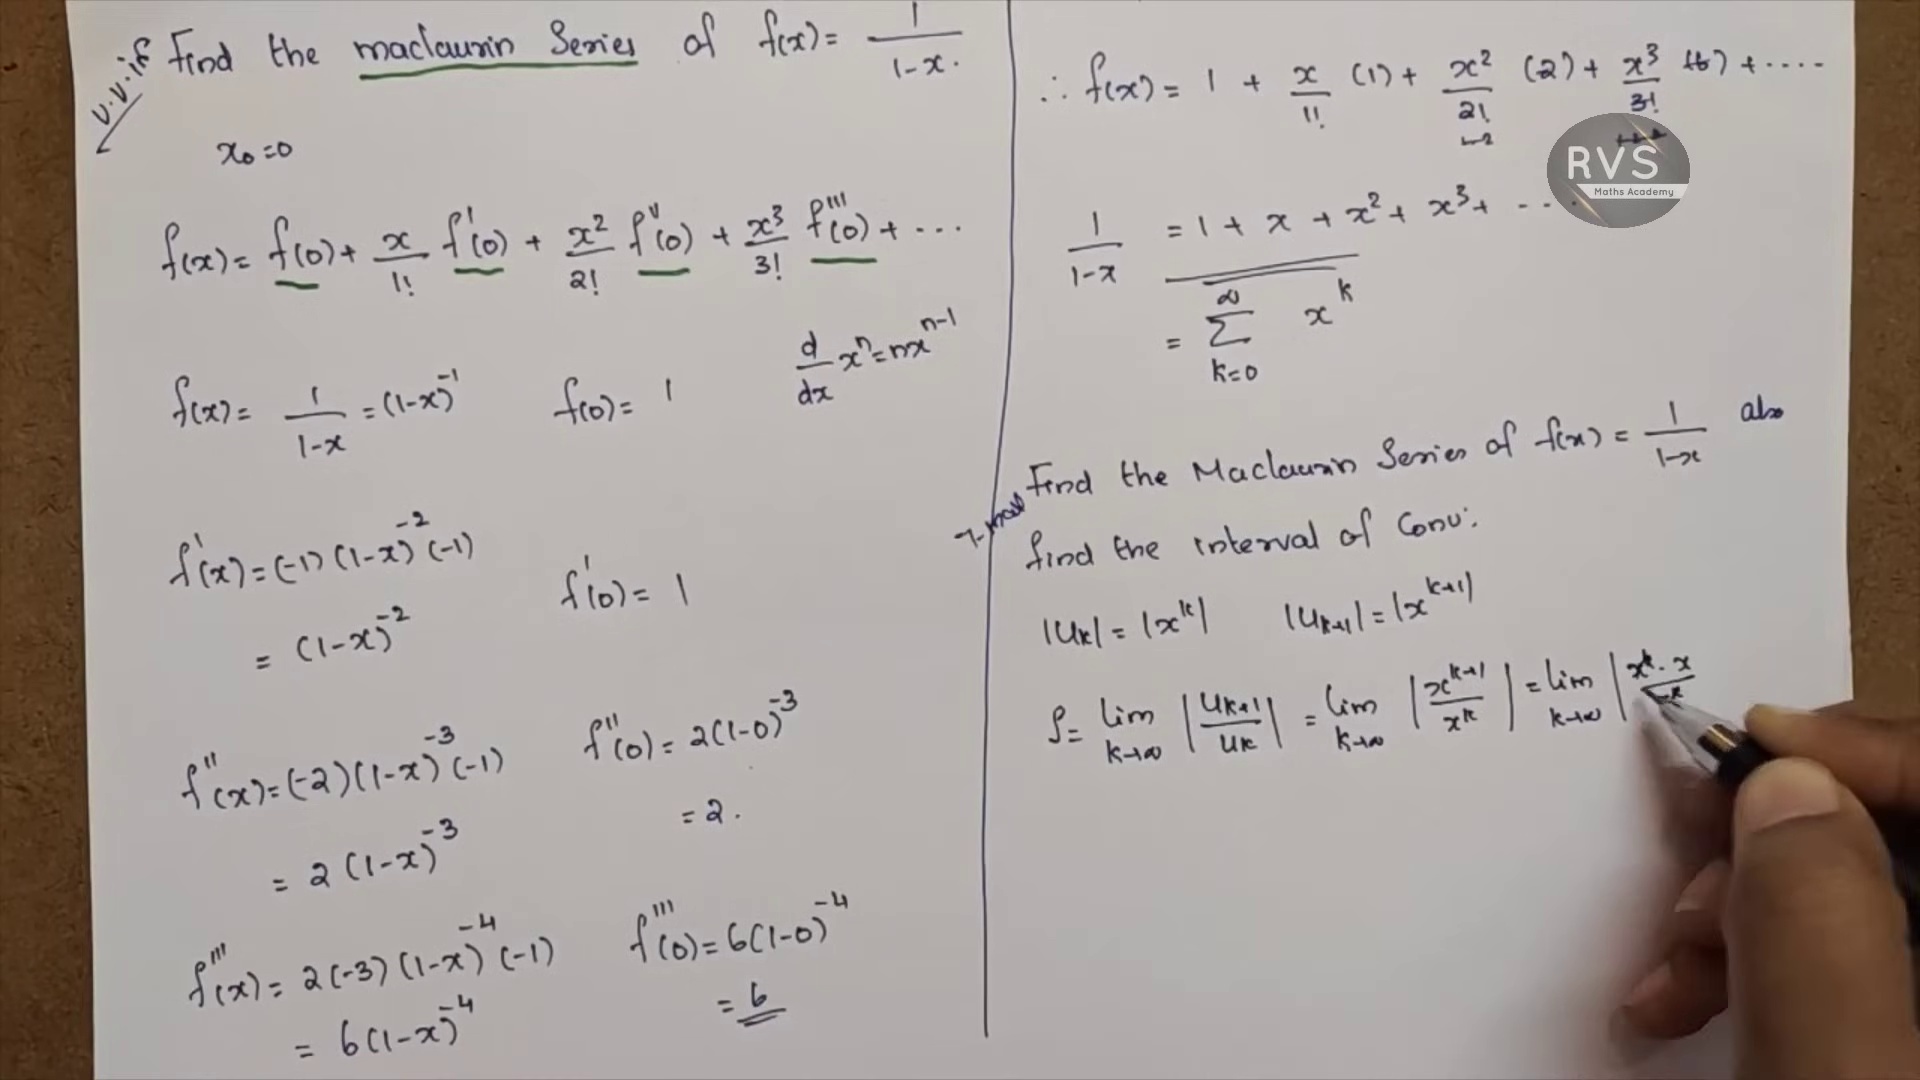 v.v.if Find the maclaurin Series of f(x) = 1/(1-x).
x₀=0
f(x) = f(0) + x/1! f'(0) + x²/2! f''(0) + x³/3! f'''(0) + ...
d/dx xⁿ = nxⁿ⁻¹
f(x) = 1/(1-x) = (1-x)⁻¹ f(0) = 1
f'(x) = (-1)(1-x)⁻²(-1) f'(0) = 1
= (1-x)⁻²
f''(x) = (-2)(1-x)⁻³(-1) f''(0) = 2(1-0)⁻³
= 2(1-x)⁻³ = 2.
f'''(x) = 2(-3)(1-x)⁻⁴(-1) f'''(0) = 6(1-0)⁻⁴
= 6(1-x)⁻⁴ = 6
∴ f(x) = 1 + x/1! (1) + x²/2! (2) + x³/3! (6) + ....
RVS
Maths Academy
1/(1-x) = 1 + x + x² + x³ + ...
= ∞ Σ k=0 xᵏ
Find the Maclaurin Series of f(x) = 1/(1-x) also
find the interval of Conv:
|Uₖ| = |xᵏ| |Uₖ₊₁| = |xᵏ⁺¹|
ρ = lim k→∞ |Uₖ₊₁/Uₖ| = lim k→∞ |xᵏ⁺¹/xᵏ| = lim k→∞ |xᵏ·x/xᵏ